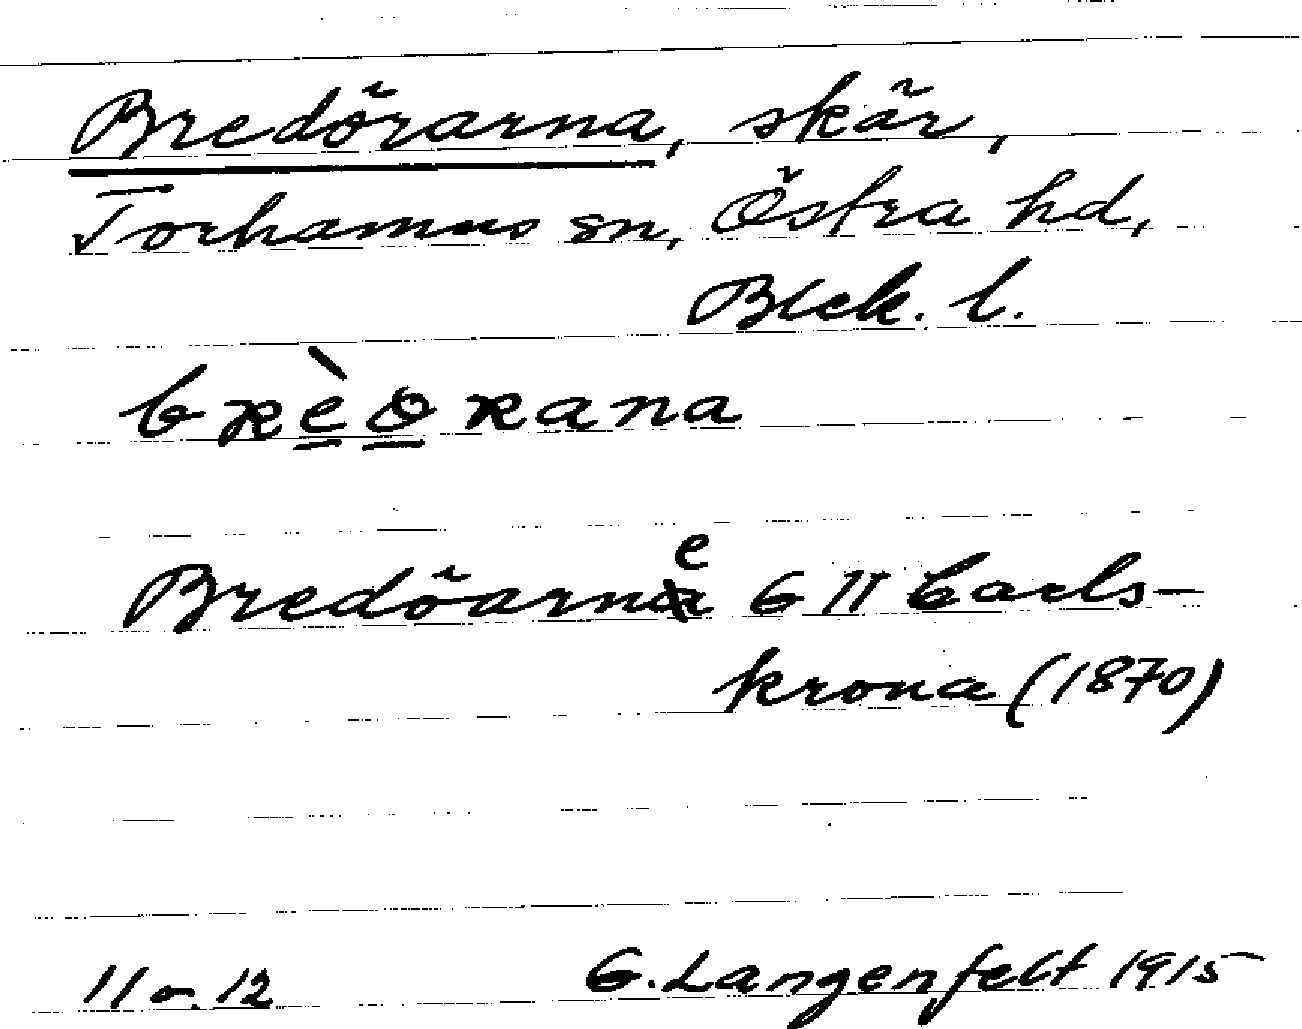 Bredörarna, skär,
Torhamns sn, Östra hd,
Blek. l.
brèørana
Bredöarne G II Carls-
krona (1870)
11 o. 12 G. Langenfelt 1915